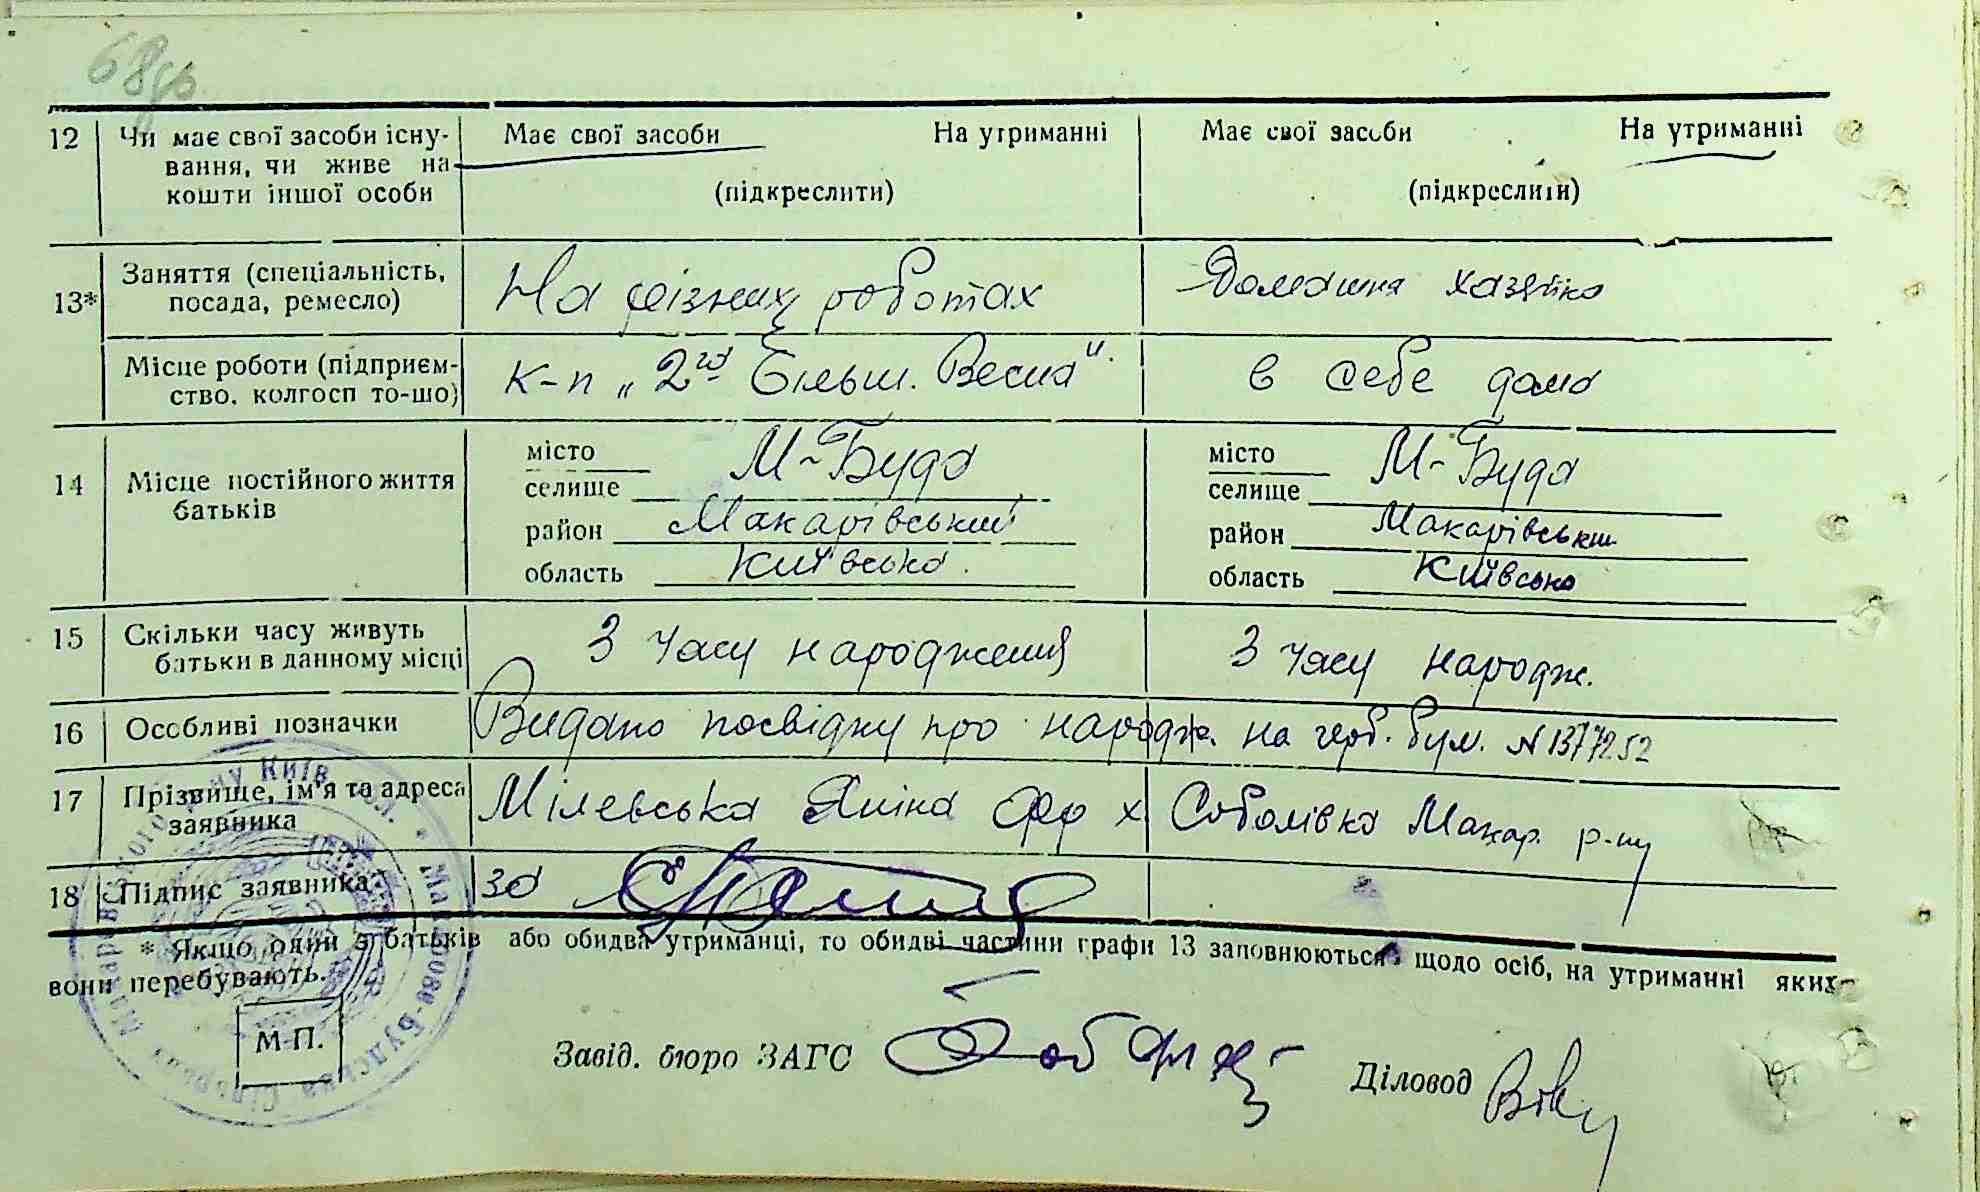 68зв.
12 Чи має свої засоби існу- Має свої засоби На утриманні Має свої засоби На утриманні
вання, чи живе на
кошти іншої особи (підкреслити) (підкреслити)
13* Заняття (спеціальність, На різних роботах Домашня хазяйка
посада, ремесло)
Місце роботи (підприєм- к-п „2га Більш. Весна". в себе дома
ство, колгосп то-що)
14 Місце постійного життя місто М-Буда місто М-Буда
батьків селище селище
район Макарівський район Макарівськи
область Київська. область Київська
15 Скільки часу живуть З часу народження З часу народж.
батьки в данному місці
16 Особливі позначки Видано посвідку про народж. на герб. бум. №1377252
17 Прізвище, ім'я та адреса Мілевська Яніна х Соболівка Макар. р-ну
заявника
18 Підпис заявника за
* Якщо один з батьків або обидва утриманці, то обидві частини графи 13 заповнюються щодо осіб, на утриманні яких
вони перебувають.
М-П. Завід. бюро ЗАГС Діловод